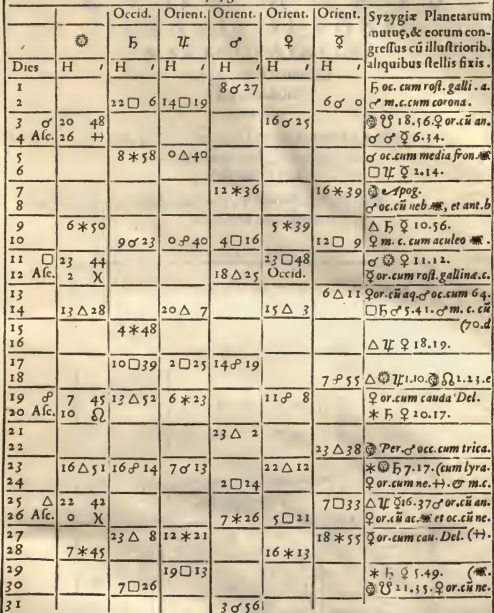 Occid. Orient. Orient. Orient. Orient. Syzygiæ Planetarum
☼ ♄ ♃ ♂ ♀ ☿ mutuę, & eorum con-
greſſus cū illuſtriorib.
Dies H ′ H ′ H ′ H ′ H ′ H ′ aliquibus ſtellis fixis.
1 8 ☌ 27 ♄ oc. cum roſt. galli. a.
2 22 □ 6 14 □ 19 6 ☌ 0 ♂ m.c. cum corona.
3 ☌ 20 48 16 ☌ 25 ☋ 18.56. ♀ or. cū an.
4 Aſc. 26 ♓ ☌ ♂ ☿ 6.34.
5 8 ⚹ 58 0 △ 40 ♂ oc. cum media fron.
6 □ ♃ ☿ 2.14.
7 12 ⚹ 36 16 ⚹ 39 Apog.
8 ♂ oc. cū neb. et ant. b
9 6 ⚹ 50 5 ⚹ 39 △ ♄ ☿ 10.56.
10 9 ☌ 23 0 ☍ 40 4 □ 16 12 □ 9 ♀ m. c. cum aculeo
11 □ 23 44 23 □ 48 ☌ ☼ ♀ 11.12.
12 Aſc. 2 ♓ 18 △ 25 Occid. ☿ or. cum roſt. gallinæ. c.
13 6 △ 11 ♀ or. cū aq. ♂ oc. cum 64.
14 13 △ 28 20 △ 7 15 △ 3 □ ♄ ♂ 5.41. ♂ m. c. cū
15 4 ⚹ 48 (70.d
16 △ ♃ ♀ 18.19.
17 10 □ 39 2 □ 25 14 ☍ 19
18 7 ☍ 55 △ ☼ ♃ 1.10. ☊ 2.23. e
19 ☍ 7 45 13 △ 52 6 ⚹ 23 11 ☍ 8 ♀ or. cum cauda Del.
20 Aſc. 10 ♌ ⚹ ♄ ♀ 10.17.
21 23 △ 2
22 23 △ 38 Per. ♂ occ. cum trica.
23 16 △ 51 16 ☍ 14 7 ☌ 13 22 △ 12 ⚹ ☼ ♄ 7.17. (cum lyra.
24 2 □ 24 ♀ or. cum ne. ♓. & m.c.
25 △ 22 42 7 □ 33 △ ♃ ☿ 16.37 ♂ or. cū an.
26 Aſc. 0 ♓ 7 ⚹ 26 5 □ 21 ♀ or. cū ac. et oc. cū ne.
27 23 △ 8 12 ⚹ 21 18 ⚹ 55 ☿ or. cum cau. Del. (♓.
28 7 ⚹ 45 16 ⚹ 13
29 19 □ 13 ⚹ ♄ ♀ 5.49.
30 7 □ 26 ☋ 21.35. ♀ or. cū ne.
31 3 ☌ 56